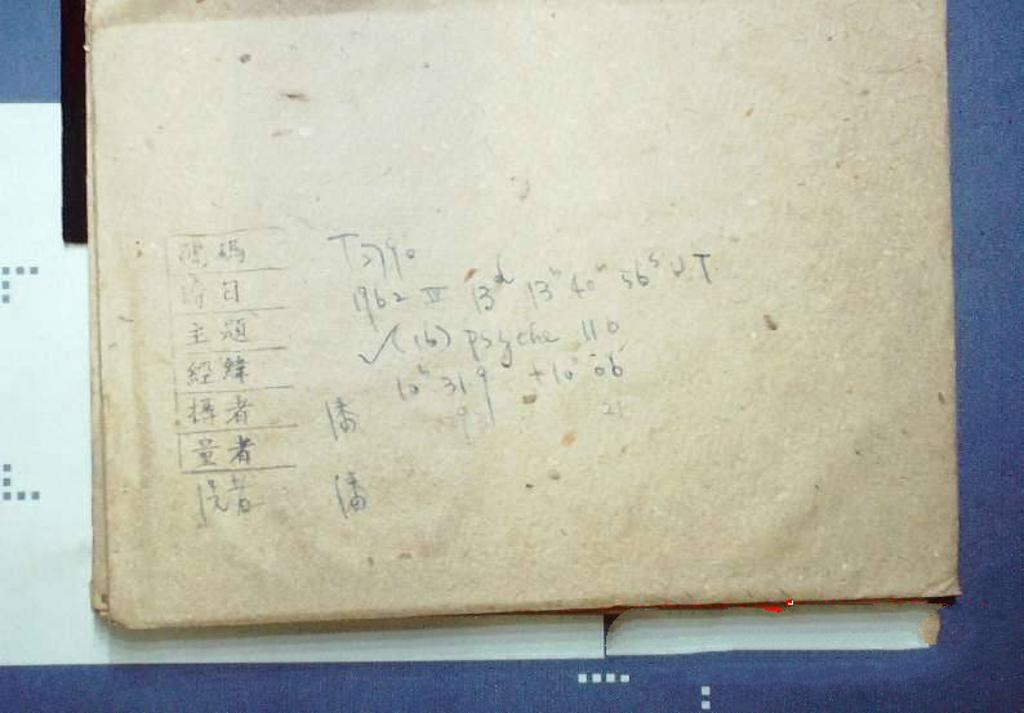 號碼 T3790
時日 1962 II 13ᵈ 13ʰ 40ᵐ 56ˢ U.T.
主題 ✓(16) psyche 11.0
經緯 10ʰ 31.9 +10° 06′
9 21
攝者 潘
量者
洗者 潘